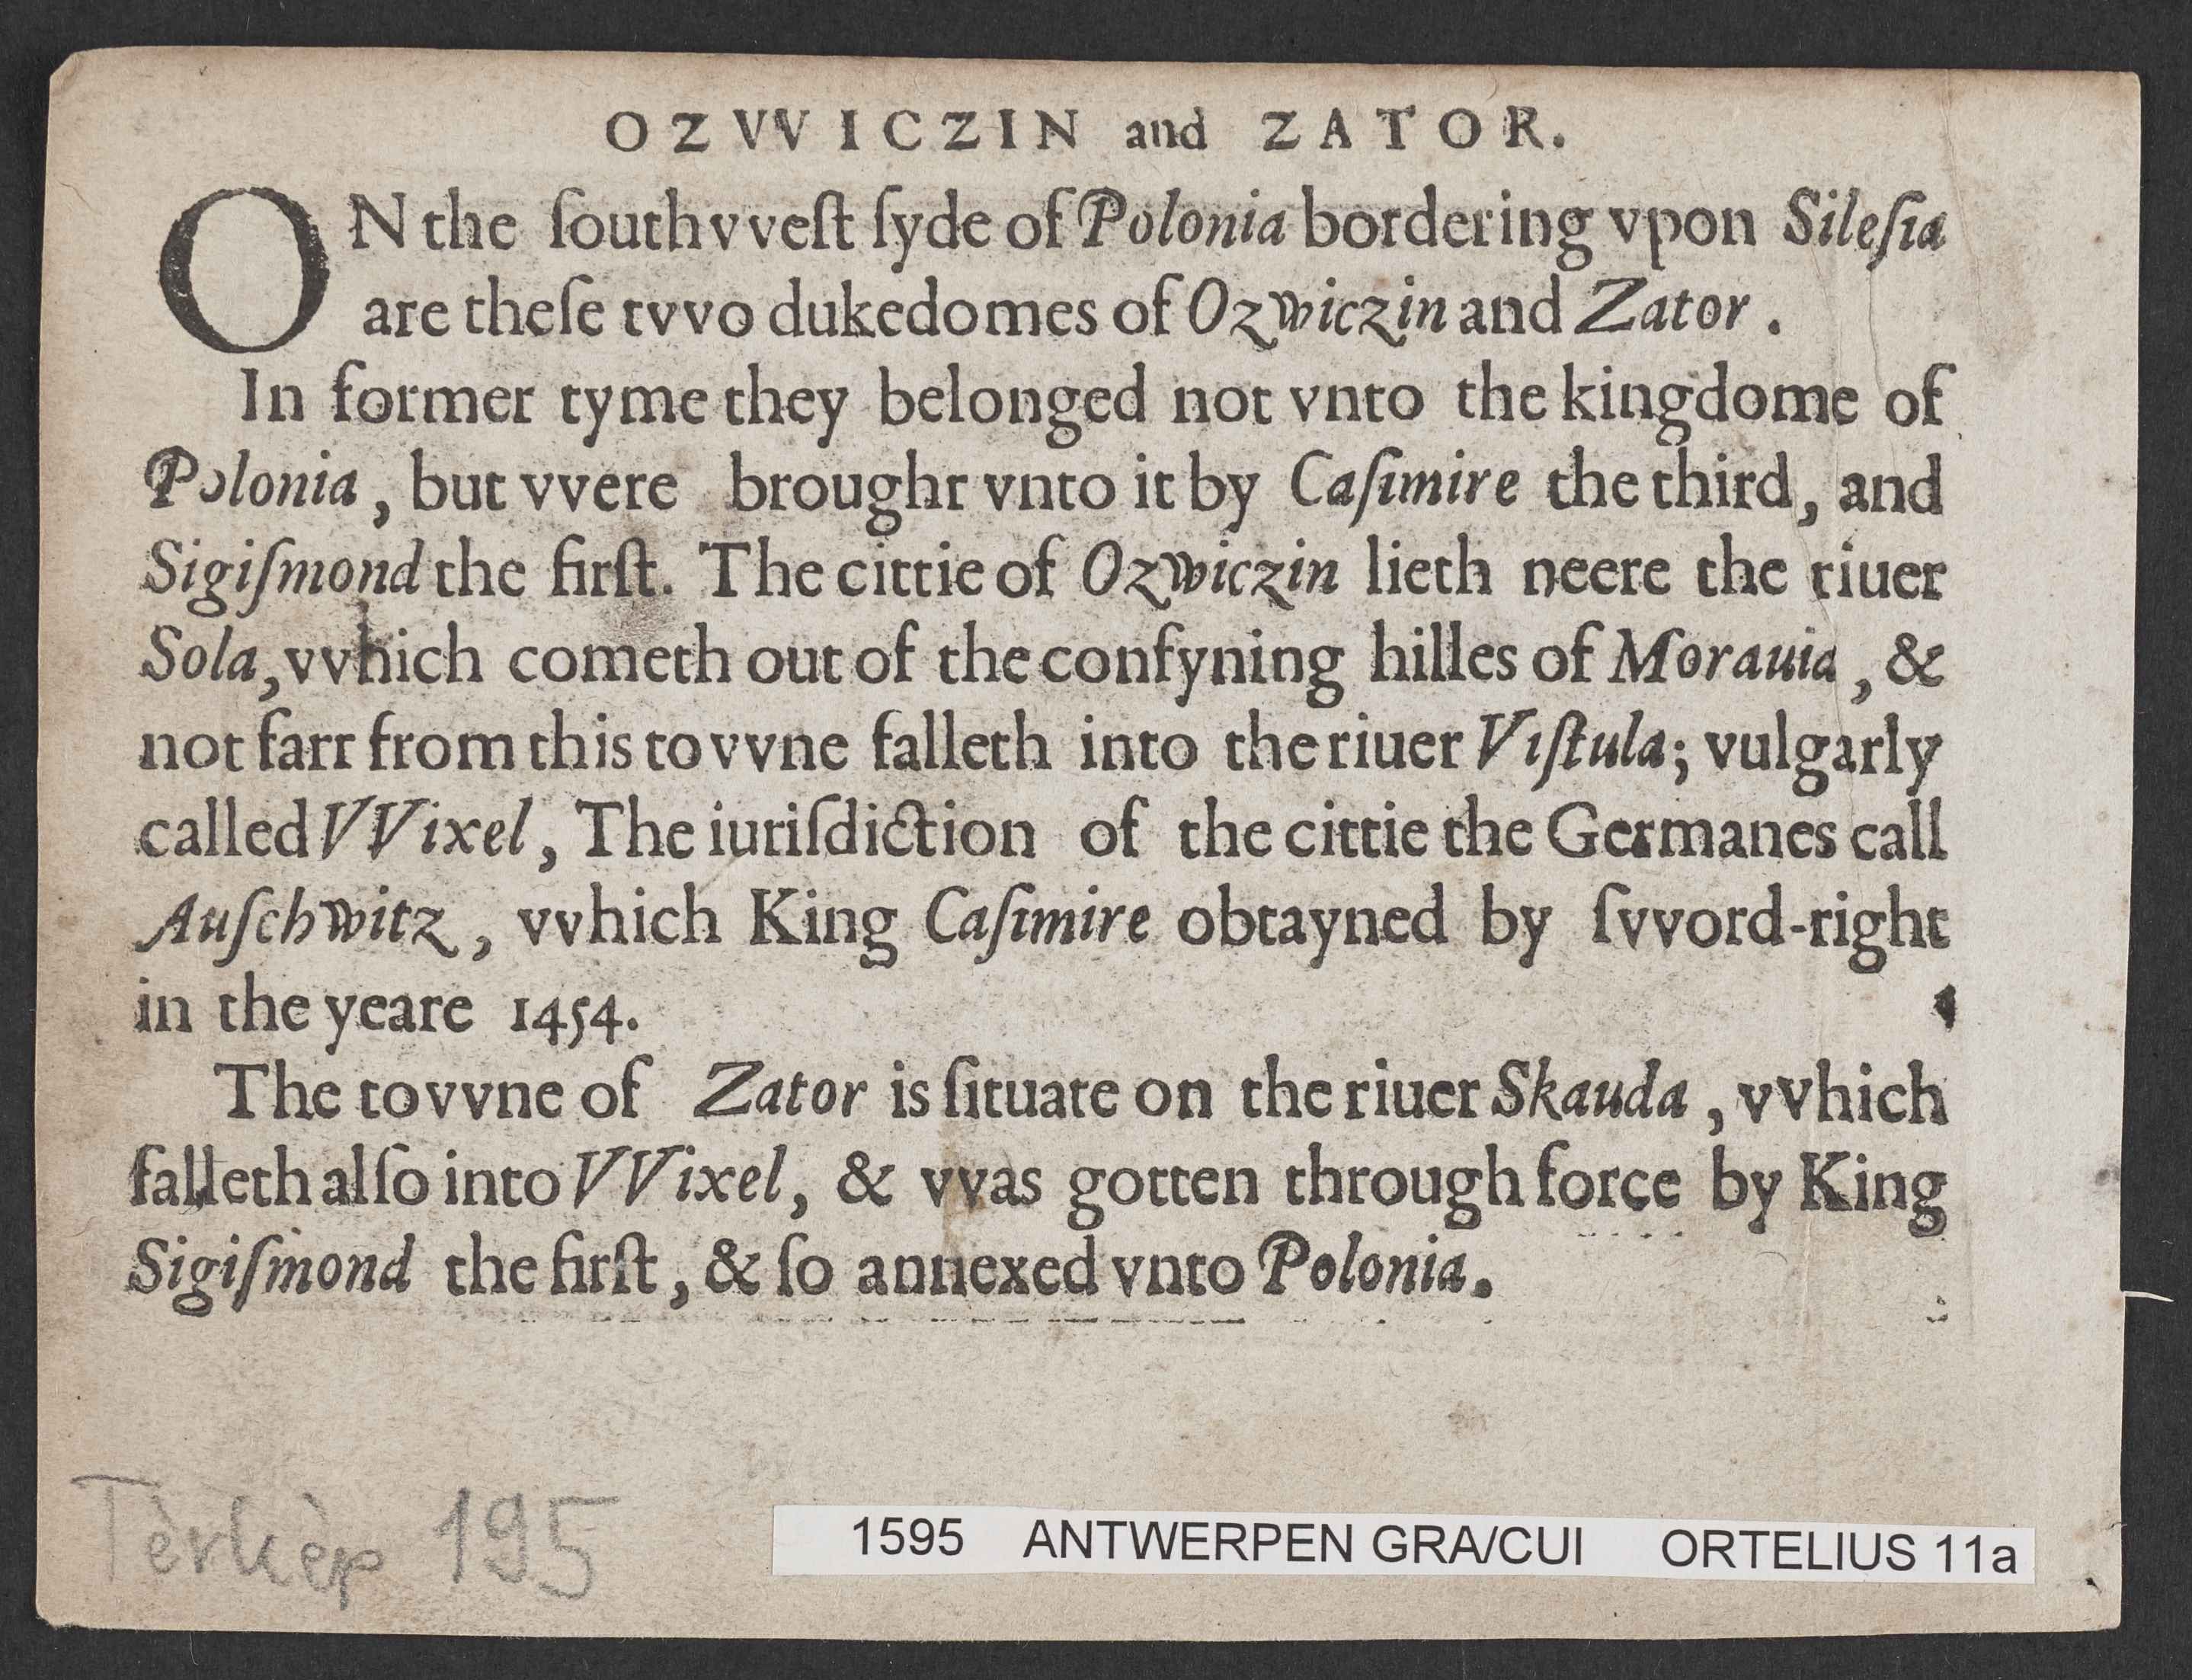 OZVVICZIN and ZATOR.
ON the ſouthvveſt ſyde of Polonia bordering vpon Sileſia
are theſe tvvo dukedomes of Ozwiczin and Zator.
In former tyme they belonged not vnto the kingdome of
Polonia, but vvere broughr vnto it by Caſimire the third, and
Sigiſmond the firſt. The cittie of Ozwiczin lieth neere the riuer
Sola, vvhich cometh out of the confyning hilles of Morauia, &
not farr from this tovvne falleth into the riuer Viſtula; vulgarly
called VVixel, The iuriſdiction of the cittie the Germanes call
Auſchwitz, vvhich King Caſimire obtayned by ſvvord-right
in the yeare 1454.
The tovvne of Zator is ſituate on the riuer Skauda, vvhich
falleth alſo into VVixel, & vvas gotten through force by King
Sigiſmond the firſt, & ſo annexed vnto Polonia.
Tèrkèp 195
1595 ANTWERPEN GRA/CUI ORTELIUS 11a